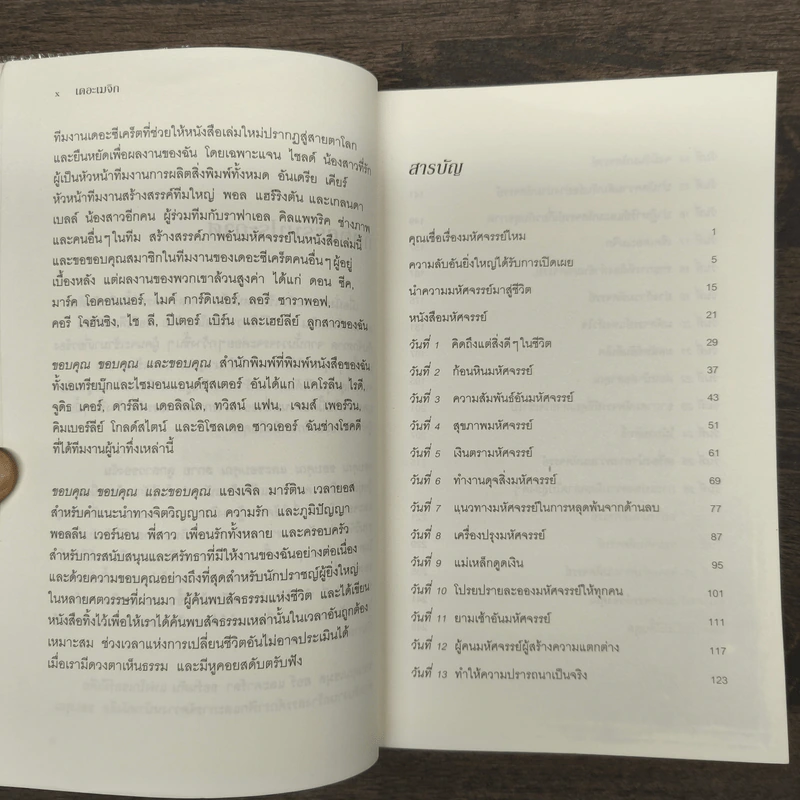 x เดอะเมจิก
ทีมงานเดอะซีเคร็ตที่ช่วยให้หนังสือเล่มใหม่ปรากฏสู่สายตาโลก
และยืนหยัดเพื่อผลงานของฉัน โดยเฉพาะแจน ไชลด์ น้องสาวที่รัก
ผู้เป็นหัวหน้าทีมงานการผลิตสิ่งพิมพ์ทั้งหมด อันเดรีย เคียร์
หัวหน้าทีมงานสร้างสรรค์ทีมใหญ่ พอล แฮร์ริงตัน และเกลนดา
เบลล์ น้องสาวอีกคน ผู้ร่วมทีมกับราฟาเอล คิลแพทริค ช่างภาพ
และคนอื่นๆ ในทีม สร้างสรรค์ภาพอันมหัศจรรย์ในหนังสือเล่มนี้
และขอขอบคุณสมาชิกในทีมงานของเดอะซีเคร็ตคนอื่นๆ ผู้อยู่
เบื้องหลัง แต่ผลงานของพวกเขาล้วนสูงค่า ได้แก่ ดอน ซีค,
มาร์ค โอคอนเนอร์, ไมค์ การ์ดิเนอร์, ลอรี ชาราพอฟ,
คอรี โจฮันซิง, ไช ลี, ปีเตอร์ เบิร์น และเฮย์ลีย์ ลูกสาวของฉัน
ขอบคุณ ขอบคุณ และขอบคุณ สำนักพิมพ์ที่พิมพ์หนังสือของฉัน
ทั้งเอเทรียบุ๊กและไซมอนแอนด์ชุสเตอร์ อันได้แก่ แคโรลีน ไรดี,
จูดิธ เคอร์, ดาร์ลีน เดอลิลโล, ทวิสน์ แฟน, เจมส์ เพอร์วิน,
คิมเบอร์ลีย์ โกลด์สไตน์ และอิโซลเดอ ซาวเออร์ ฉันช่างโชคดี
ที่ได้ทีมงานผู้น่าทึ่งเหล่านี้
ขอบคุณ ขอบคุณ และขอบคุณ แองเจิล มาร์ติน เวลายอส
สำหรับคำแนะนำทางจิตวิญญาณ ความรัก และภูมิปัญญา
พอลลีน เวอร์นอน พี่สาว เพื่อนรักทั้งหลาย และครอบครัว
สำหรับการสนับสนุนและศรัทธาที่มีให้งานของฉันอย่างต่อเนื่อง
และด้วยความขอบคุณอย่างถึงที่สุดสำหรับนักปราชญ์ผู้ยิ่งใหญ่
ในหลายศตวรรษที่ผ่านมา ผู้ค้นพบสัจธรรมแห่งชีวิต และได้เขียน
หนังสือทิ้งไว้เพื่อให้เราได้ค้นพบสัจธรรมเหล่านั้นในเวลาอันถูกต้อง
เหมาะสม ช่วงเวลาแห่งการเปลี่ยนชีวิตอันไม่อาจประเมินได้
เมื่อเรามีดวงตาเห็นธรรม และมีหูคอยสดับตรับฟัง
สารบัญ
คุณเชื่อเรื่องมหัศจรรย์ไหม 1
ความลับอันยิ่งใหญ่ได้รับการเปิดเผย 5
นำความมหัศจรรย์มาสู่ชีวิต 15
หนังสือมหัศจรรย์ 21
วันที่ 1 คิดถึงแต่สิ่งดีๆ ในชีวิต 29
วันที่ 2 ก้อนหินมหัศจรรย์ 37
วันที่ 3 ความสัมพันธ์อันมหัศจรรย์ 43
วันที่ 4 สุขภาพมหัศจรรย์ 51
วันที่ 5 เงินตรามหัศจรรย์ 61
วันที่ 6 ทำงานดุจสิ่งมหัศจรรย์ 69
วันที่ 7 แนวทางมหัศจรรย์ในการหลุดพ้นจากด้านลบ 77
วันที่ 8 เครื่องปรุงมหัศจรรย์ 87
วันที่ 9 แม่เหล็กดูดเงิน 95
วันที่ 10 โปรยปรายละอองมหัศจรรย์ให้ทุกคน 101
วันที่ 11 ยามเช้าอันมหัศจรรย์ 111
วันที่ 12 ผู้คนมหัศจรรย์ผู้สร้างความแตกต่าง 117
วันที่ 13 ทำให้ความปรารถนาเป็นจริง 123